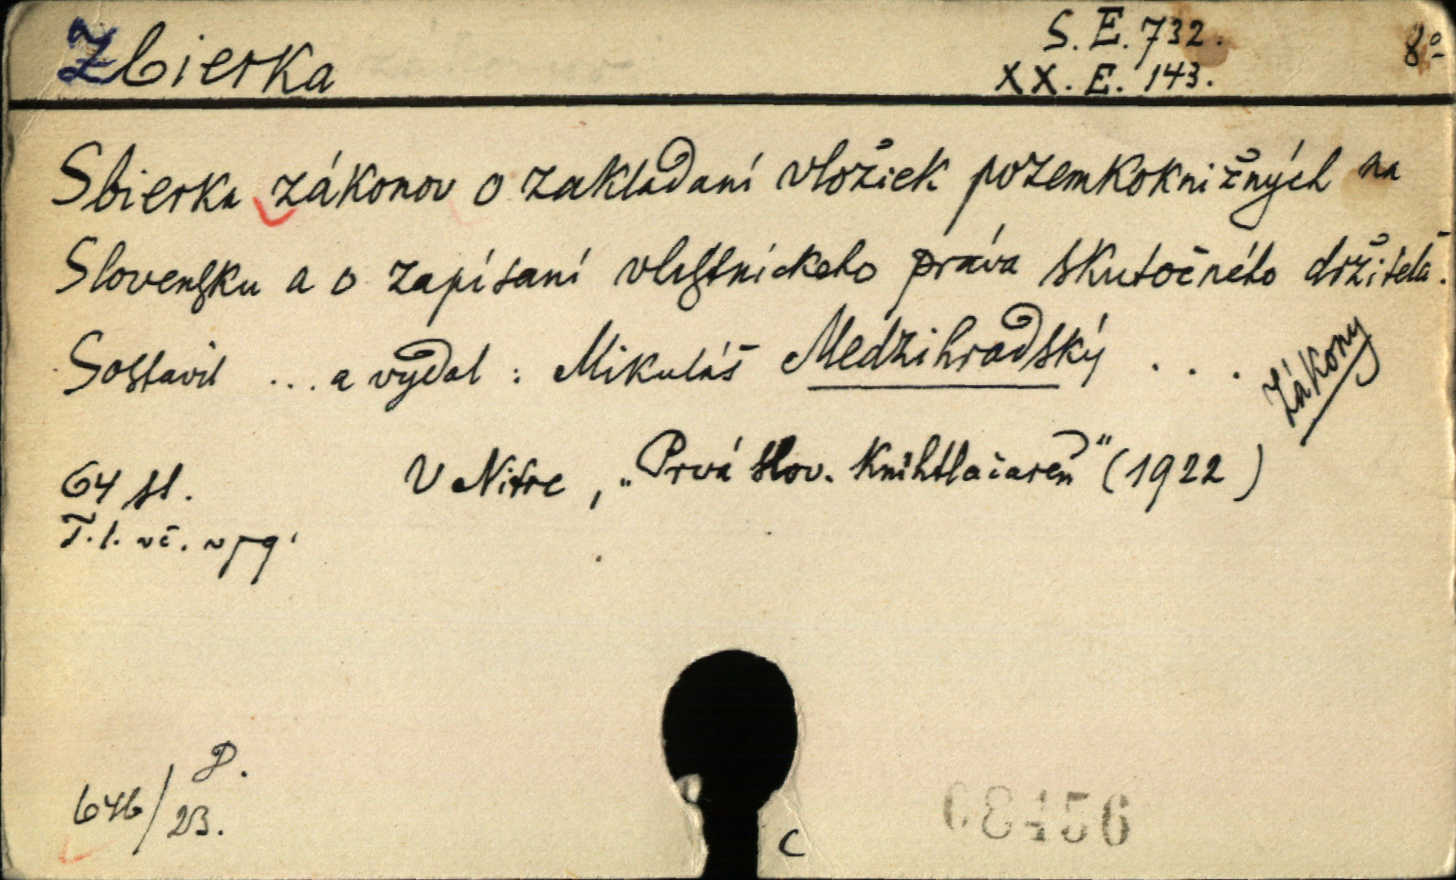 Zbierka
S. E. 732.
8°
XX. E. 143.
Sbierka zákonov o zakladaní vložiek pozemkoknižných na
Slovensku a o zapísaní vlastníckeho práva skutočného držiteľa.
Sostavil ... a vydal : Mikuláš Medzihradský ...
Zákony
64 st. V Nitre, „Prvá slov. Knihtlačiareň" (1922)
T. l. vč.
D.
646/23.
C
08456